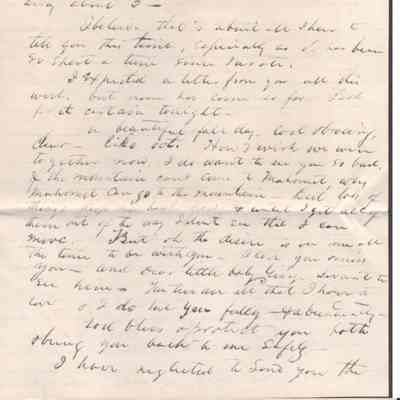 about 3 -
I believe that is about all I have to
tell you this time, especially as it has been
so short a time since I wrote.
I expected a letter from you all this
week, but none has come so far. Look
for it certain tonight.
a beautiful fall day. Cool blowing,
clear - like Oct. How I wish we were
together now, I do want to see you so bad.
If the mountain can't come to Mahomet, why
Mahomet can go to the mountain - But lots of
things & until I get all of
them out of the way I don't see that I can
move. But oh the desire is on me all
the time to be with you. I love you
you - and our little baby
her all that I have
love & I do love you fully
God bless & protect you both
& bring you back to me safely -
I have neglected to send you the